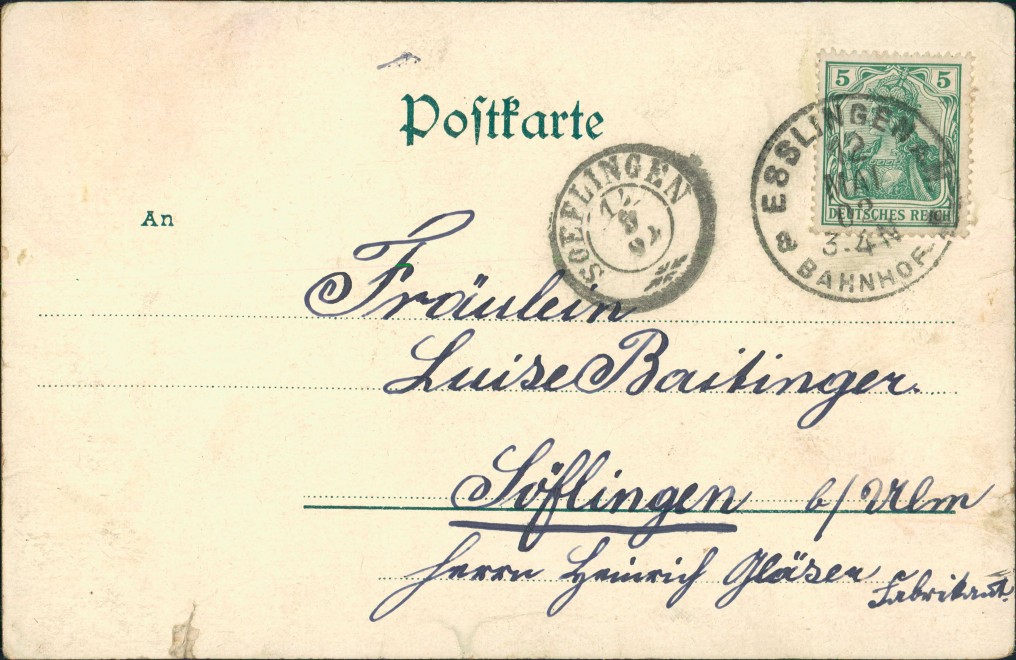 Postkarte
5 5
DEUTSCHES REICH
ESSLINGEN
12
MAI
02
3-4N
BAHNHOF
SOEFLINGEN
An
Fräulein
Luise Baitinger.
Söflingen b/Ulm
Herrn Heinrich Gläser
Fabrikant.